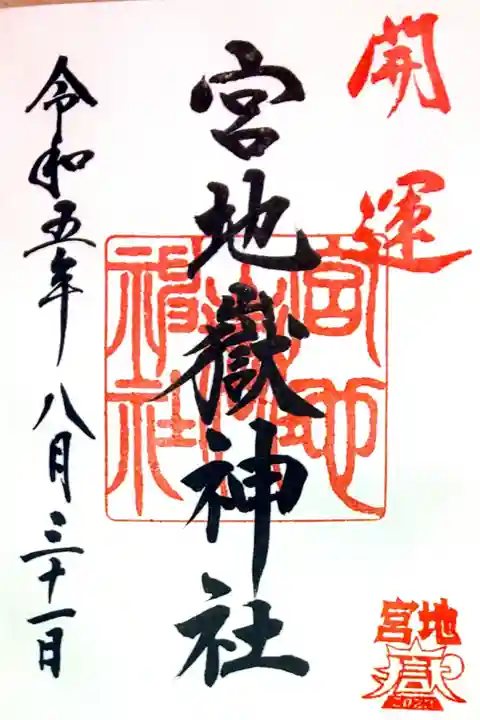 開運
宮地嶽神社
宮地嶽神社
令和五年八月三十一日
宮地
嶽
2023